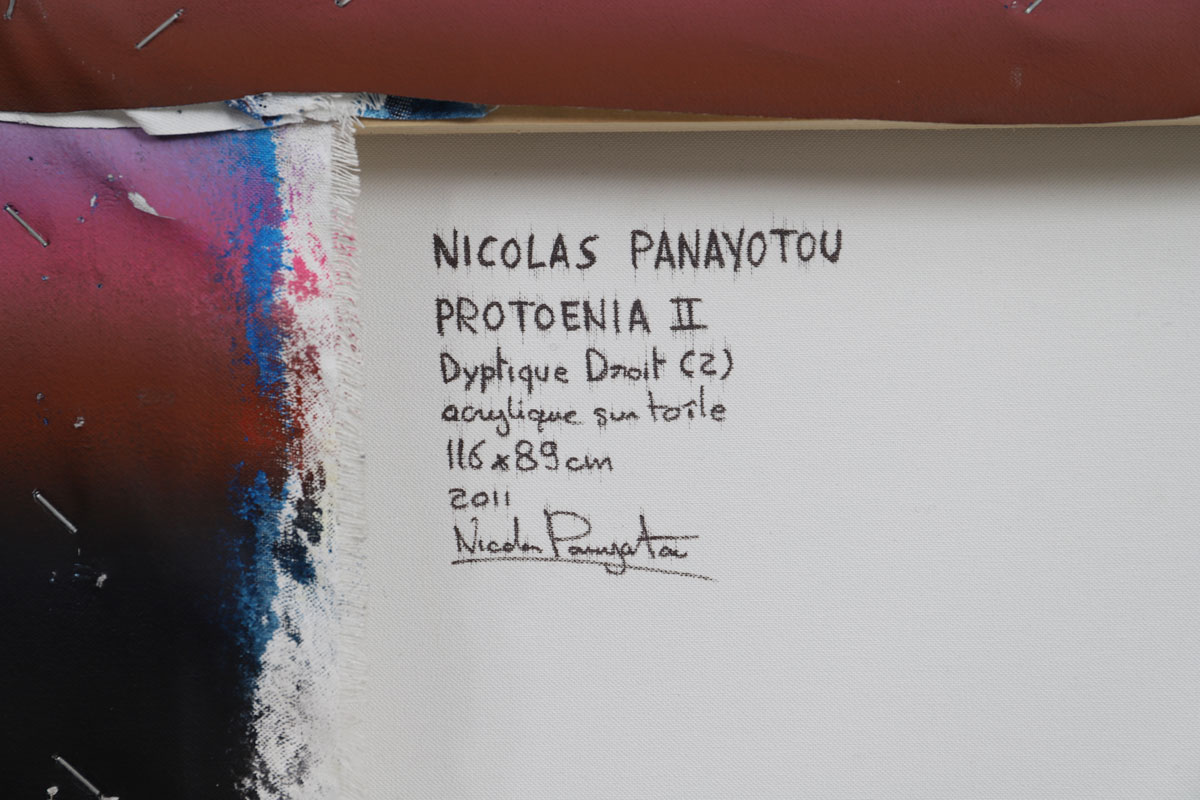 NICOLAS PANAYOTOU
PROTOENIA II
Dyptique Droit (2)
acrylique sur toîle
116x89cm
2011
Nicolas Panayotou